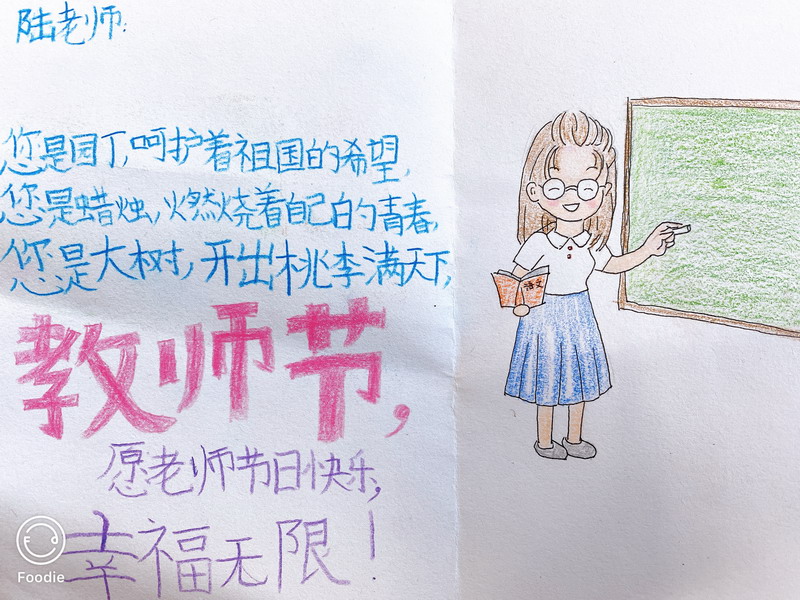 陆老师:
您是园丁,呵护着祖国的希望,
您是蜡烛,燃烧着自己的青春,
您是大树,开出桃李满天下,
教师节,
愿老师节日快乐,
幸福无限!
语文
Foodie